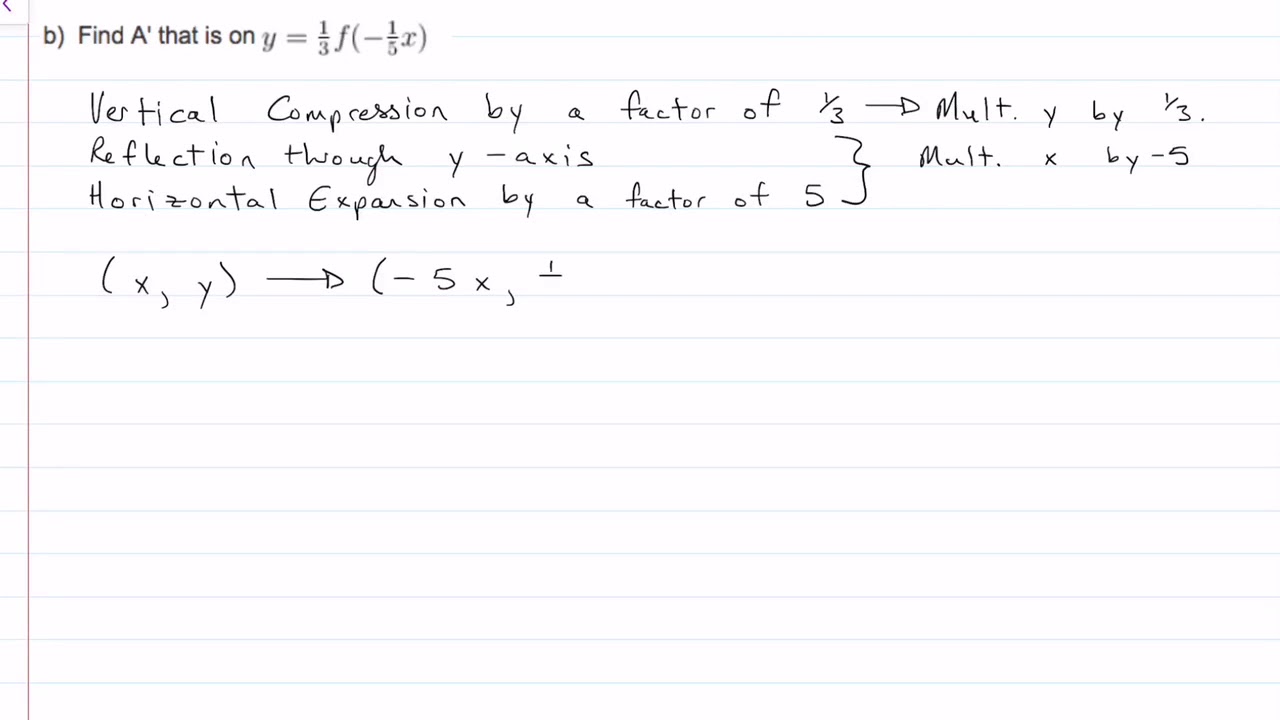 b) Find A' that is on y = 1/3 f(-1/5 x)
Vertical Compression by a factor of 1/3 → Mult. y by 1/3.
Reflection through y-axis } Mult. x by -5
Horizontal Expansion by a factor of 5
(x, y) → (-5x, 1